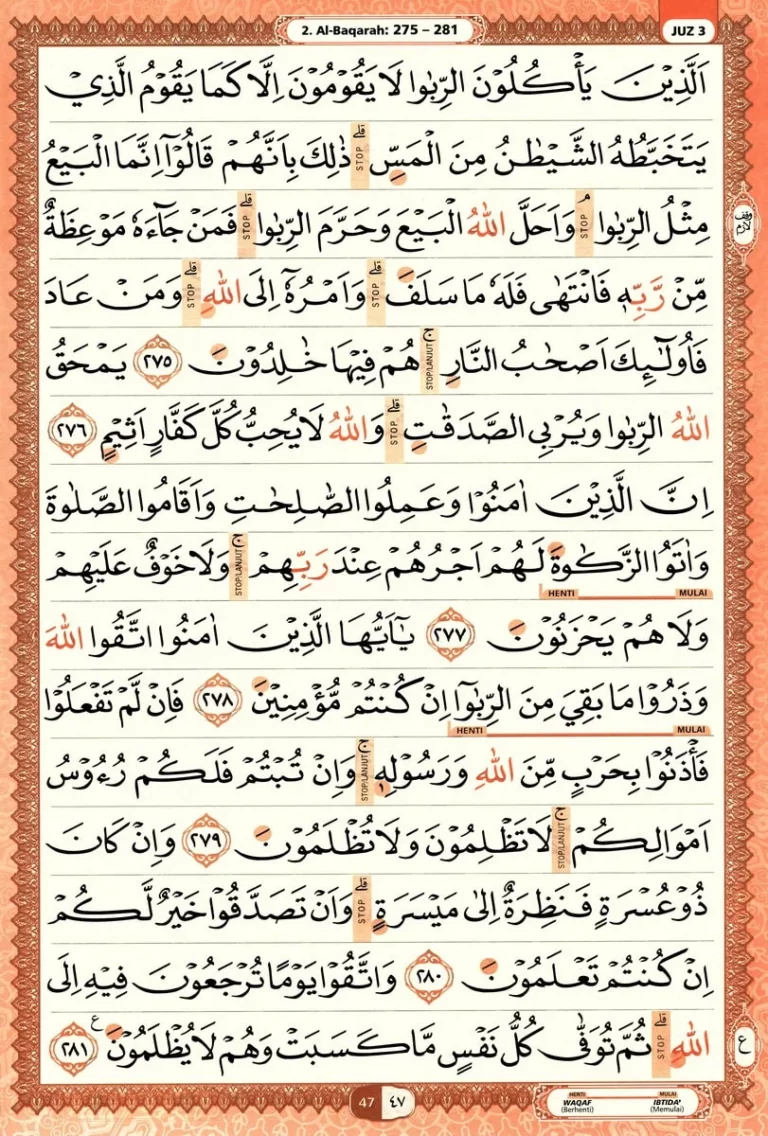 2. Al-Baqarah: 275 – 281
JUZ 3
اَلَّذِيْنَ يَأْكُلُوْنَ الرِّبٰوا لَا يَقُوْمُوْنَ اِلَّا كَمَا يَقُوْمُ الَّذِيْ
يَتَخَبَّطُهُ الشَّيْطٰنُ مِنَ الْمَسِّۗ STOP ذٰلِكَ بِاَنَّهُمْ قَالُوْٓا اِنَّمَا الْبَيْعُ
مِثْلُ الرِّبٰواۘ STOP وَاَحَلَّ اللّٰهُ الْبَيْعَ وَحَرَّمَ الرِّبٰواۗ STOP فَمَنْ جَاۤءَهٗ مَوْعِظَةٌ
وقف لازم
مِّنْ رَّبِّهٖ فَانْتَهٰى فَلَهٗ مَا سَلَفَۗ STOP وَاَمْرُهٗٓ اِلَى اللّٰهِۗ STOP وَمَنْ عَادَ
فَاُولٰۤىِٕكَ اَصْحٰبُ النَّارِۚ STOP/LANJUT هُمْ فِيْهَا خٰلِدُوْنَ ٢٧٥ يَمْحَقُ
اللّٰهُ الرِّبٰوا وَيُرْبِى الصَّدَقٰتِۗ STOP وَاللّٰهُ لَا يُحِبُّ كُلَّ كَفَّارٍ اَثِيْمٍ ٢٧٦
اِنَّ الَّذِيْنَ اٰمَنُوْا وَعَمِلُوا الصّٰلِحٰتِ وَاَقَامُوا الصَّلٰوةَ
وَاٰتَوُا الزَّكٰوةَ لَهُمْ اَجْرُهُمْ عِنْدَ رَبِّهِمْۚ STOP/LANJUT وَلَا خَوْفٌ عَلَيْهِمْ
HENTI MULAI
وَلَا هُمْ يَحْزَنُوْنَ ٢٧٧ يٰٓاَيُّهَا الَّذِيْنَ اٰمَنُوا اتَّقُوا اللّٰهَ
وَذَرُوْا مَا بَقِيَ مِنَ الرِّبٰوٓا اِنْ كُنْتُمْ مُّؤْمِنِيْنَ ٢٧٨ فَاِنْ لَّمْ تَفْعَلُوْا
HENTI MULAI
فَأْذَنُوْا بِحَرْبٍ مِّنَ اللّٰهِ وَرَسُوْلِهٖۚ STOP/LANJUT وَاِنْ تُبْتُمْ فَلَكُمْ رُءُوْسُ
اَمْوَالِكُمْۚ STOP/LANJUT لَا تَظْلِمُوْنَ وَلَا تُظْلَمُوْنَ ٢٧٩ وَاِنْ كَانَ
ذُوْ عُسْرَةٍ فَنَظِرَةٌ اِلٰى مَيْسَرَةٍۗ STOP وَاَنْ تَصَدَّقُوْا خَيْرٌ لَّكُمْ
اِنْ كُنْتُمْ تَعْلَمُوْنَ ٢٨٠ وَاتَّقُوْا يَوْمًا تُرْجَعُوْنَ فِيْهِ اِلَى
اللّٰهِۗ STOP ثُمَّ تُوَفّٰى كُلُّ نَفْسٍ مَّا كَسَبَتْ وَهُمْ لَا يُظْلَمُوْنَ ࣖ ٢٨١
ع
47 ٤٧
HENTI MULAI
WAQAF IBTIDA'
(Berhenti) (Memulai)